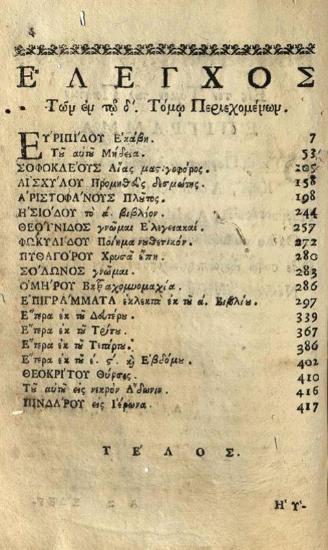 4
ΕΛΕΓΧΟΣ
Τῶν ἐν τῷ δ'. Τόμῳ Περιεχομένων.
ΕΥΡΙΠΙΔΟΥ Ἑκάβη. 7
Τοῦ αὐτοῦ Μήδεια. 53
ΣΟΦΟΚΛΕΟΥΣ Αἴας μαστιγοφόρος. 105
ΑΙΣΧΥΛΟΥ Προμηθεὺς δεσμώτης. 158
ΑΡΙΣΤΟΦΑΝΟΥΣ Πλοῦτος. 198
ΗΣΙΟΔΟΥ τὸ α. βιβλίον. 244
ΘΕΟΓΝΙΔΟΣ γνῶμαι Ἐλεγειακαί. 257
ΦΩΚΥΛΙΔΟΥ Ποίημα νουθετικόν. 272
ΠΥΘΑΓΟΡΟΥ Χρυσᾶ ἔπη. 280
ΣΟΛΩΝΟΣ γνῶμαι. 283
ΟΜΗΡΟΥ Βατραχομυομαχία. 286
ΕΠΙΓΡΑΜΜΑΤΑ ἐκλεκτὰ ἐκ τοῦ α. Βιβλίου. 297
Ἕτερα ἐκ τοῦ Δευτέρου. 339
Ἕτερα ἐκ τοῦ Τρίτου. 367
Ἕτερα ἐκ τοῦ Τετάρτου. 386
Ἕτερα ἐκ τοῦ ε. ϛ. καὶ Ἑβδόμου. 402
ΘΕΟΚΡΙΤΟΥ Θύρσις. 410
Τοῦ αὐτοῦ εἰς νεκρὸν Ἄδωνιν. 416
ΠΙΝΔΑΡΟΥ εἰς Ἱέρωνα. 417
ΤΕΛΟΣ.
Η' Υ'-